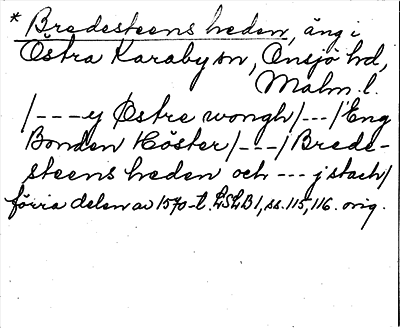 * Bredesteens heden, äng i
Östra Karaby sn, Onsjö hd,
Malm. l.
/---ey Østre wongh/---/Eng
Bonden Höster/---/Brede-
steens heden och --- j stack/
förra delen av 1570-t. LSLB1, ss. 115, 116. orig.